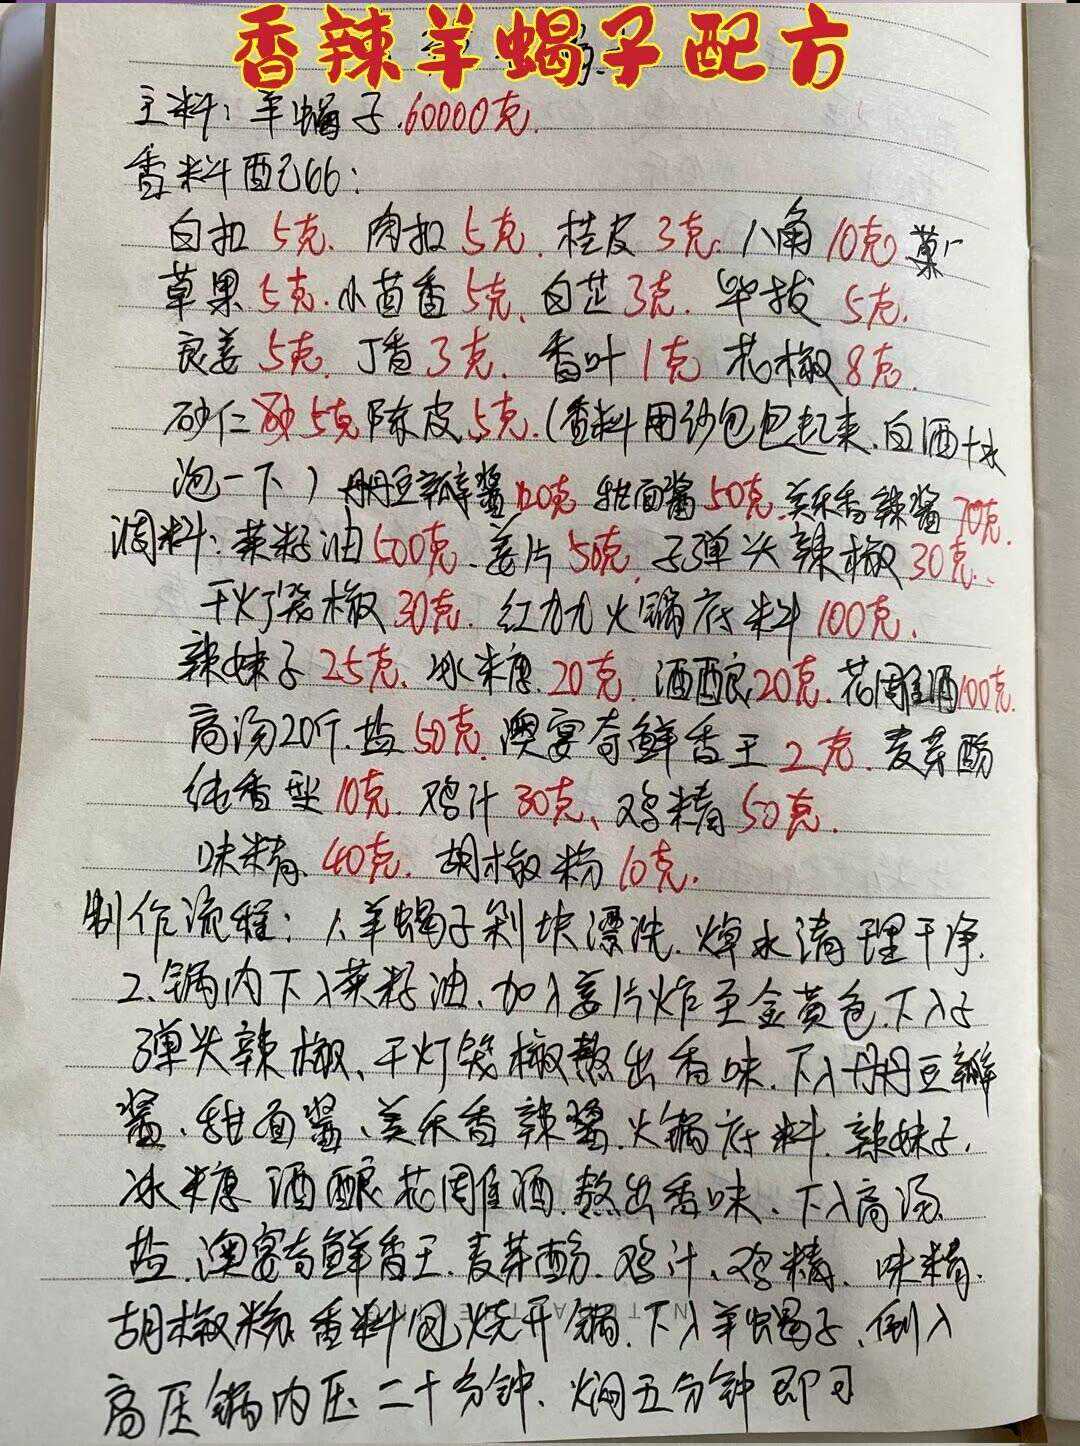 香辣羊蝎子配方
主料：羊蝎子.60000克.
香料配己66：
白扣 5克. 肉扣 5克. 桂皮 3克. 八角 10克
草果 5克. 小茴香 5克. 白芷 3克. 毕拔 5克.
良姜 5克. 丁香 3克. 香叶 1克 花椒 8克.
砂仁 砂 5克 陈皮 5克.(香料用纱包包起来.白酒+水
泡一下) 丹丹豆瓣酱 120克 甜面酱 50克.美乐香辣酱 70克.
调料：菜籽油 500克.姜片 50克.子弹头辣椒 30克.
干灯笼椒 30克. 红九九火锅底料 100克.
辣妹子 25克. 冰糖. 20克 酒酿 20克. 花雕酒 100克.
高汤20斤.盐 50克.澳宴奇鲜香王 2克.麦芽酚
纯香型 10克. 鸡汁 30克、鸡精 50克.
味精. 40克. 胡椒粉 10克.
制作流程：1.羊蝎子剁块漂洗.焯水清理干净.
2.锅内下入菜籽油.加入姜片炸至金黄色.下入子
弹头辣椒、干灯笼椒熬出香味.下入丹丹豆瓣
酱、甜面酱、美乐香辣酱.火锅底料.辣妹子.
冰糖 酒酿 花雕酒.熬出香味.下入高汤.
盐.澳宴奇鲜香王.麦芽酚.鸡汁、鸡精.味精.
胡椒粉.香料包烧开锅.下入羊蝎子.倒入
高压锅内压二十分钟.焖五分钟即可